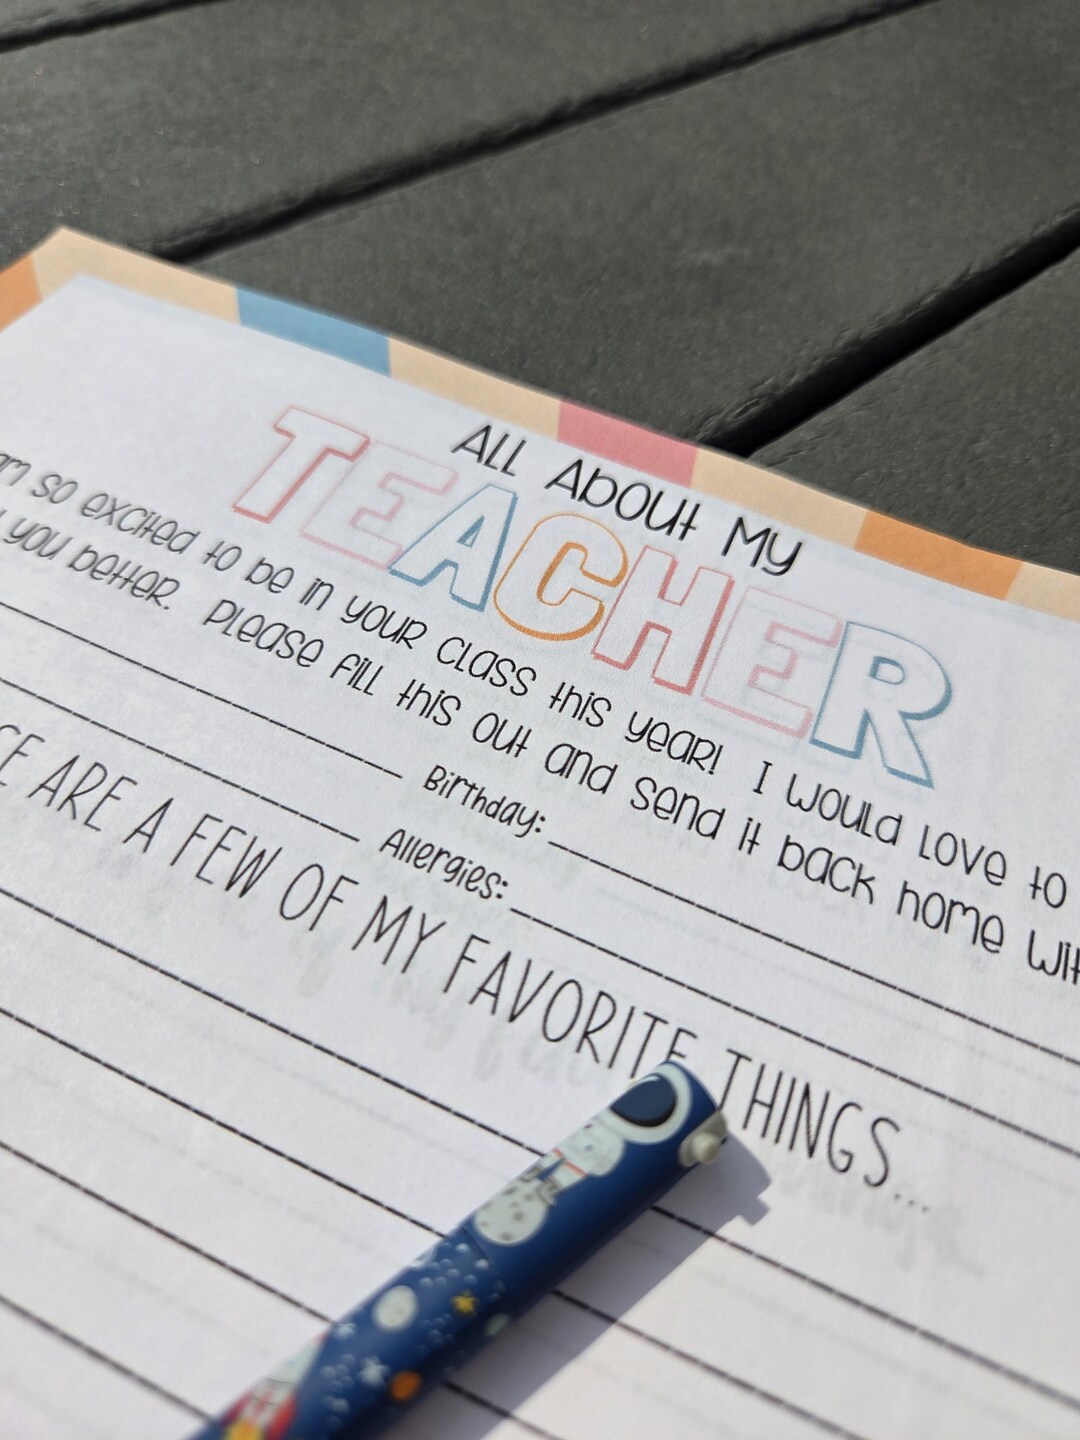 All About My
TEACHER
am so excited to be in your class this year! I would love to
you better. Please fill this out and send it back home
Birthday:
Allergies:
ARE A FEW OF MY FAVORITE THINGS...